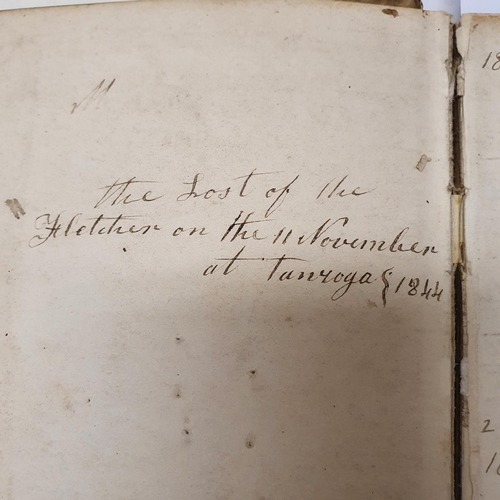 M
the Lost of the
Fletcher on the 11 November
at Tanroga { 1844
18
2